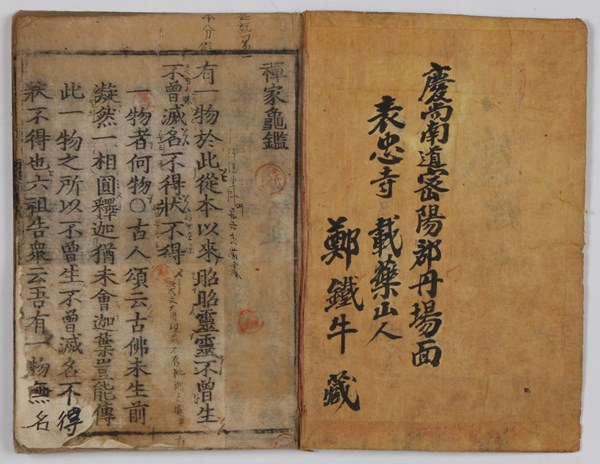 慶尚南道密陽郡丹場面
表忠寺 載藥山人
鄭鐵牛 藏
禪家龜鑑
有一物於此從本以來昭昭靈靈不曾生
不曾滅名不得狀不得
一物者何物〇古人頌云古佛未生前
凝然一相圓釋迦猶未會迦葉豈能傳
此一物之所以不曾生不曾滅名不得
狀不得也六祖告衆云吾有一物無名